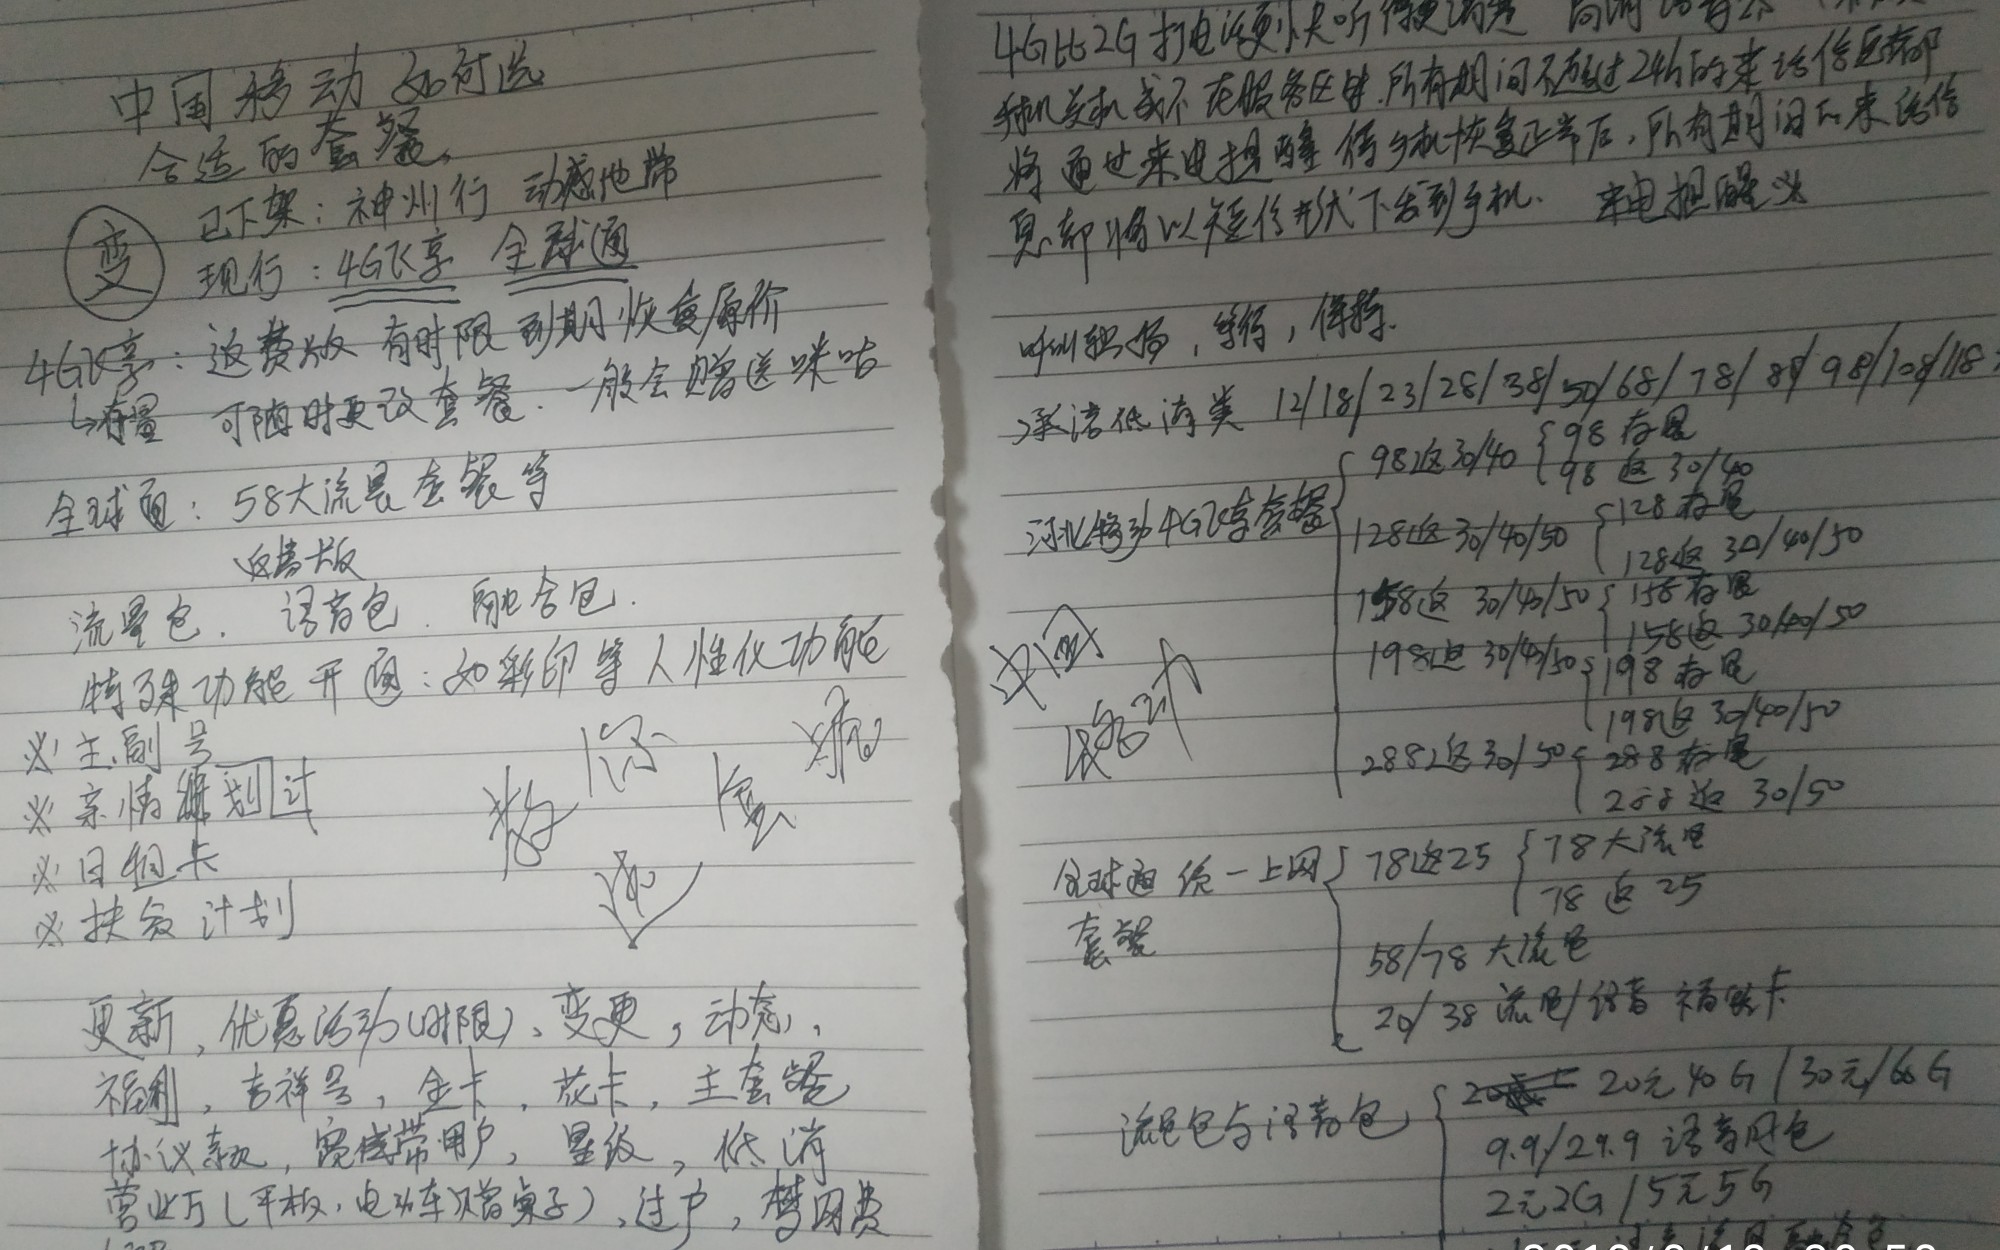 中国移动 如何选
合适的套餐
变
已下架：神州行 动感地带
现行：4G飞享 全球通
4G飞享：返费版 有时限 到期恢复原价
↳存量 可随时更改套餐.一般会赠送咪咕
全球通：58大流量套餐等
返费版
流量包. 语音包. 融合包.
特殊功能开通：如彩印等人性化功能
※ 主副号
※ 亲情 计划
※ 日租卡
※ 扶贫计划
更新,优惠活动(时限)、变更,动态,
福利,吉祥号,金卡,花卡,主套餐
协议款,宽带用户,星级,低消
营业厅(平板,电动车,赠桌子),过户,梦网费
4G比2G打电话更 听得更清楚
手机关机或不在服务区时.所有期间不超过24h的来话信息都
将通过来电提醒 待手机恢复正常后,所有期间的来话信
息都将以短信形式下发到手机. 来电提醒
呼叫转移,等待,保持.
承诺低消类 12/18/23/28/38/50/68/78/88/98/108/118
河北移动4G飞享套餐
98返30/40 98存量
98返30/40
128返30/40/50 128存量
128返30/40/50
158返30/40/50 158存量
158返30/40/50
198返30/40/50 198存量
198返30/40/50
288返30/50 288存量
288返30/50
全球通统一上网
套餐
78返25 78大流量
78返25
58/78大流量
20/38流量/语音 卡
流量包与语音包
20元40G/30元/60G
9.9/29.9语音月包
2元2G/5元5G